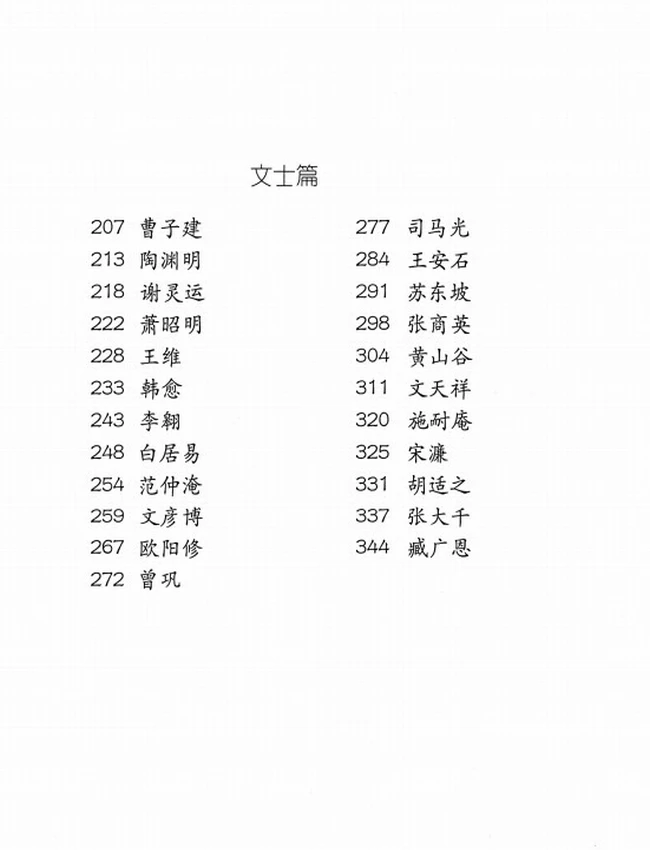 文士篇
207 曹子建
213 陶渊明
218 谢灵运
222 萧昭明
228 王维
233 韩愈
243 李翱
248 白居易
254 范仲淹
259 文彦博
267 欧阳修
272 曾巩
277 司马光
284 王安石
291 苏东坡
298 张商英
304 黄山谷
311 文天祥
320 施耐庵
325 宋濂
331 胡适之
337 张大千
344 臧广恩